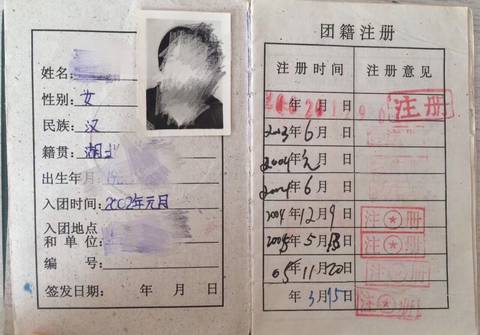 姓名:
性别: 女
民族: 汉
籍贯: 湖北
出生年月:
入团时间: 2002年元月
入团地点
和 单 位:
编 号:
签发日期: 年 月 日
团籍注册
注册时间 注册意见
年 月 日 注册
2003年6月 日
2004年元月 日
2004年6月 日
2004年12月9日 注册
2005年5月 日 注册
05年11月20日 注册
年3月15日 注册